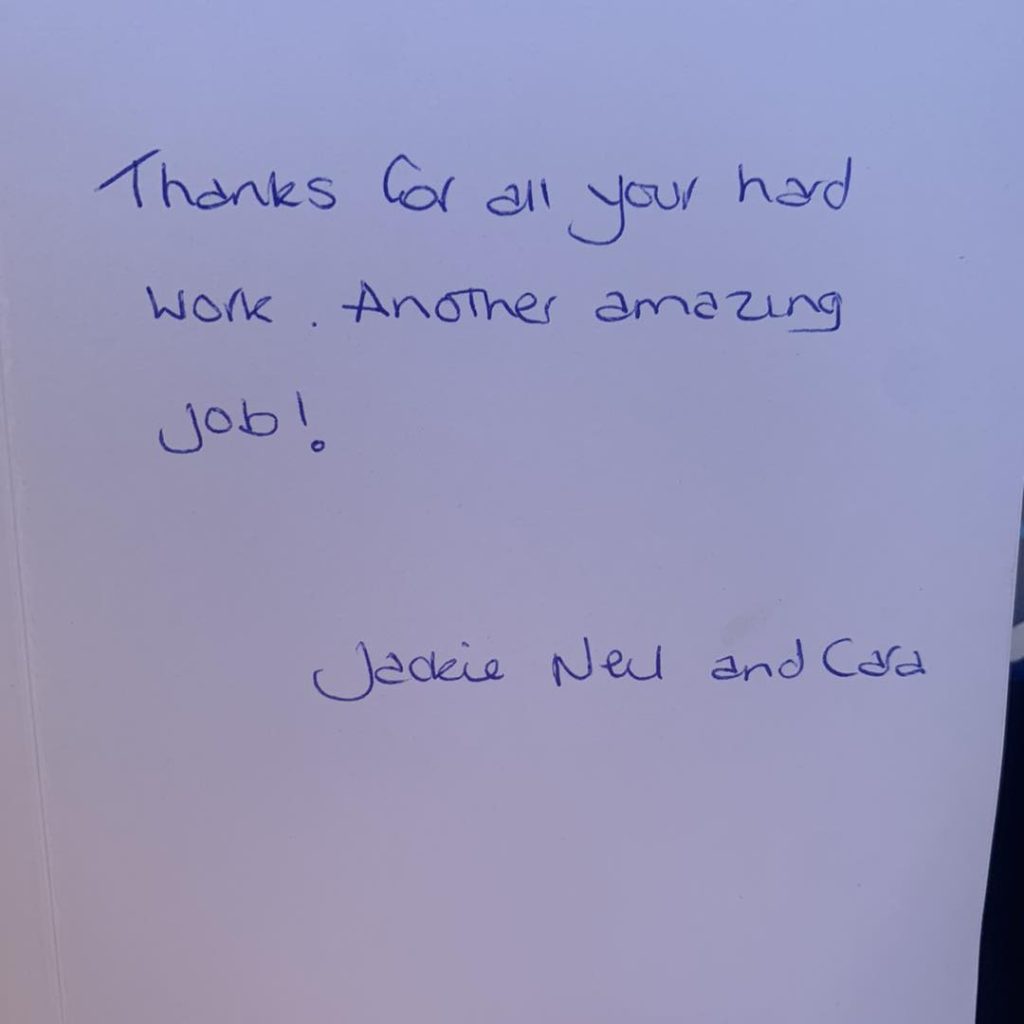 Thanks for all your hard
work. Another amazing
job!
Jackie Neil and Cara